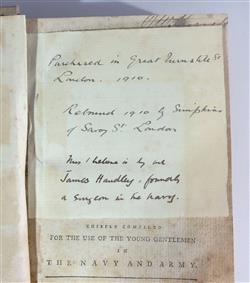 Purchased in Great Turnstile St
London. 1910.
Rebound 1910 by Simpkins
of Savoy St. London
This I believe is by one
James Handley. formerly
a Surgeon in the Navy.
CHIEFLY COMPILED
FOR THE USE OF THE YOUNG GENTLEMEN
IN
THE NAVY AND ARMY.